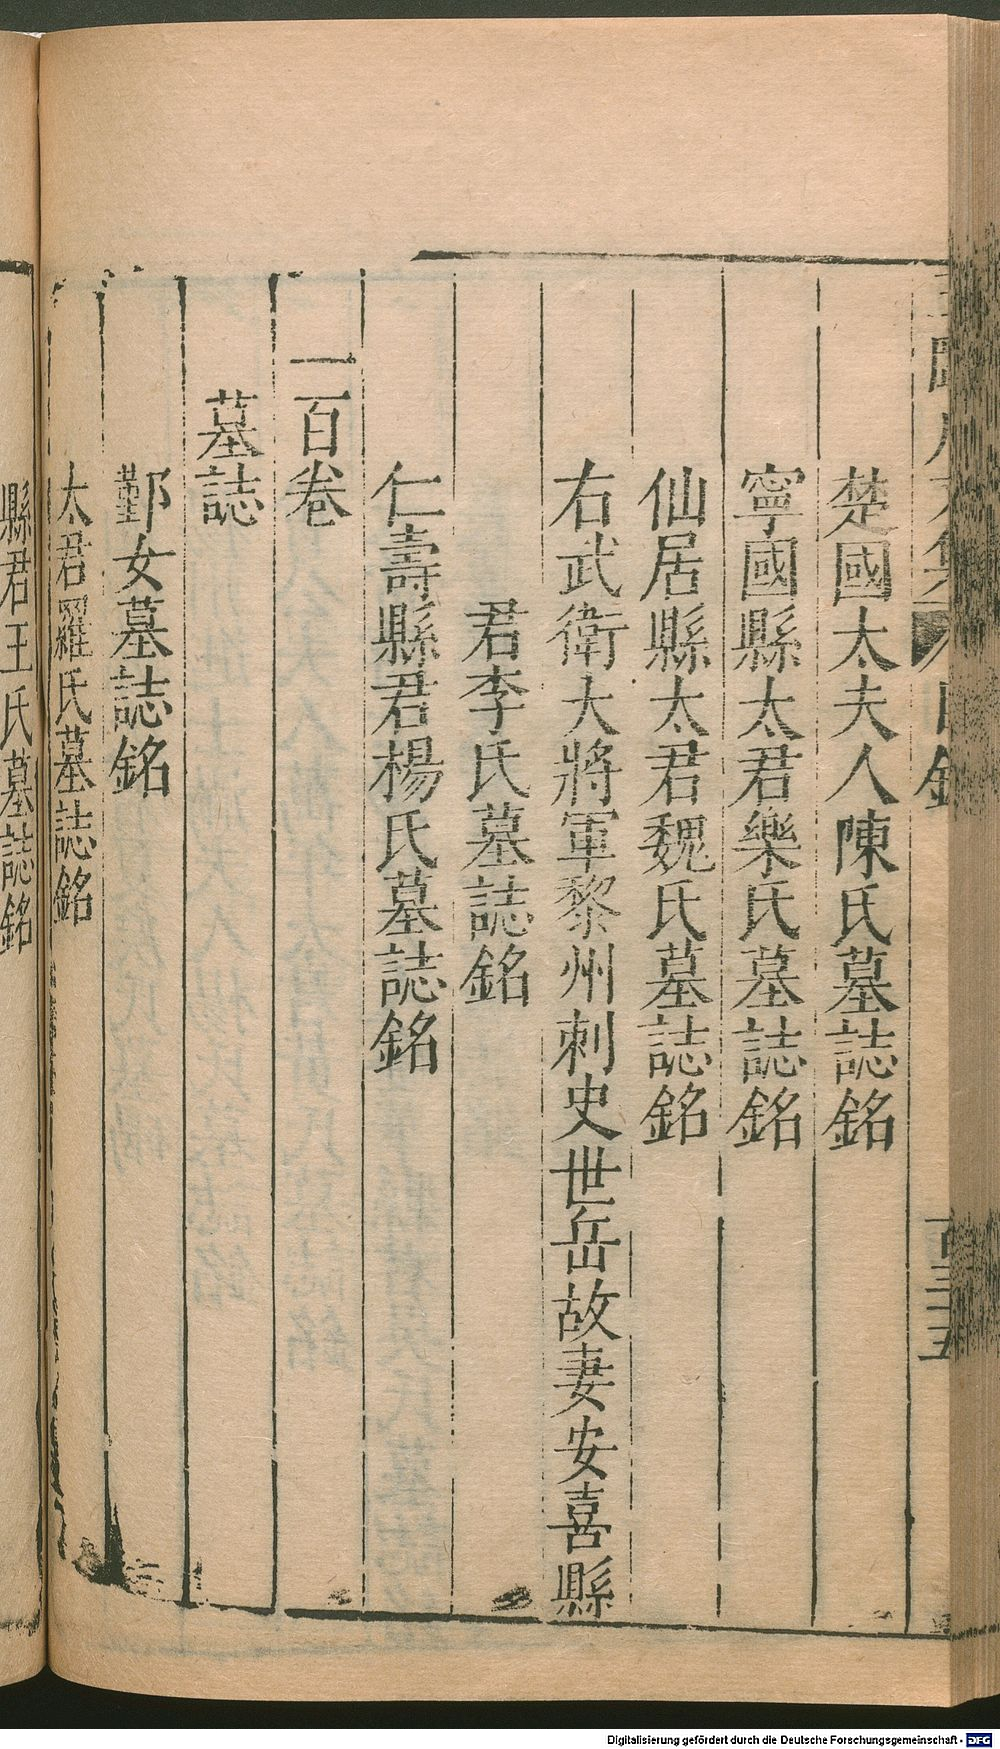 楚國太夫人陳氏墓誌銘
寧國縣太君樂氏墓誌銘
仙居縣太君魏氏墓誌銘
右武衛大將軍黎州刺史世岳故妻安喜縣
君李氏墓誌銘
仁壽縣君楊氏墓誌銘
一百卷
墓誌
鄞女墓誌銘
太君羅氏墓誌銘
縣君王氏墓誌銘
Digitalisierung gefördert durch die Deutsche Forschungsgemeinschaft - DFG